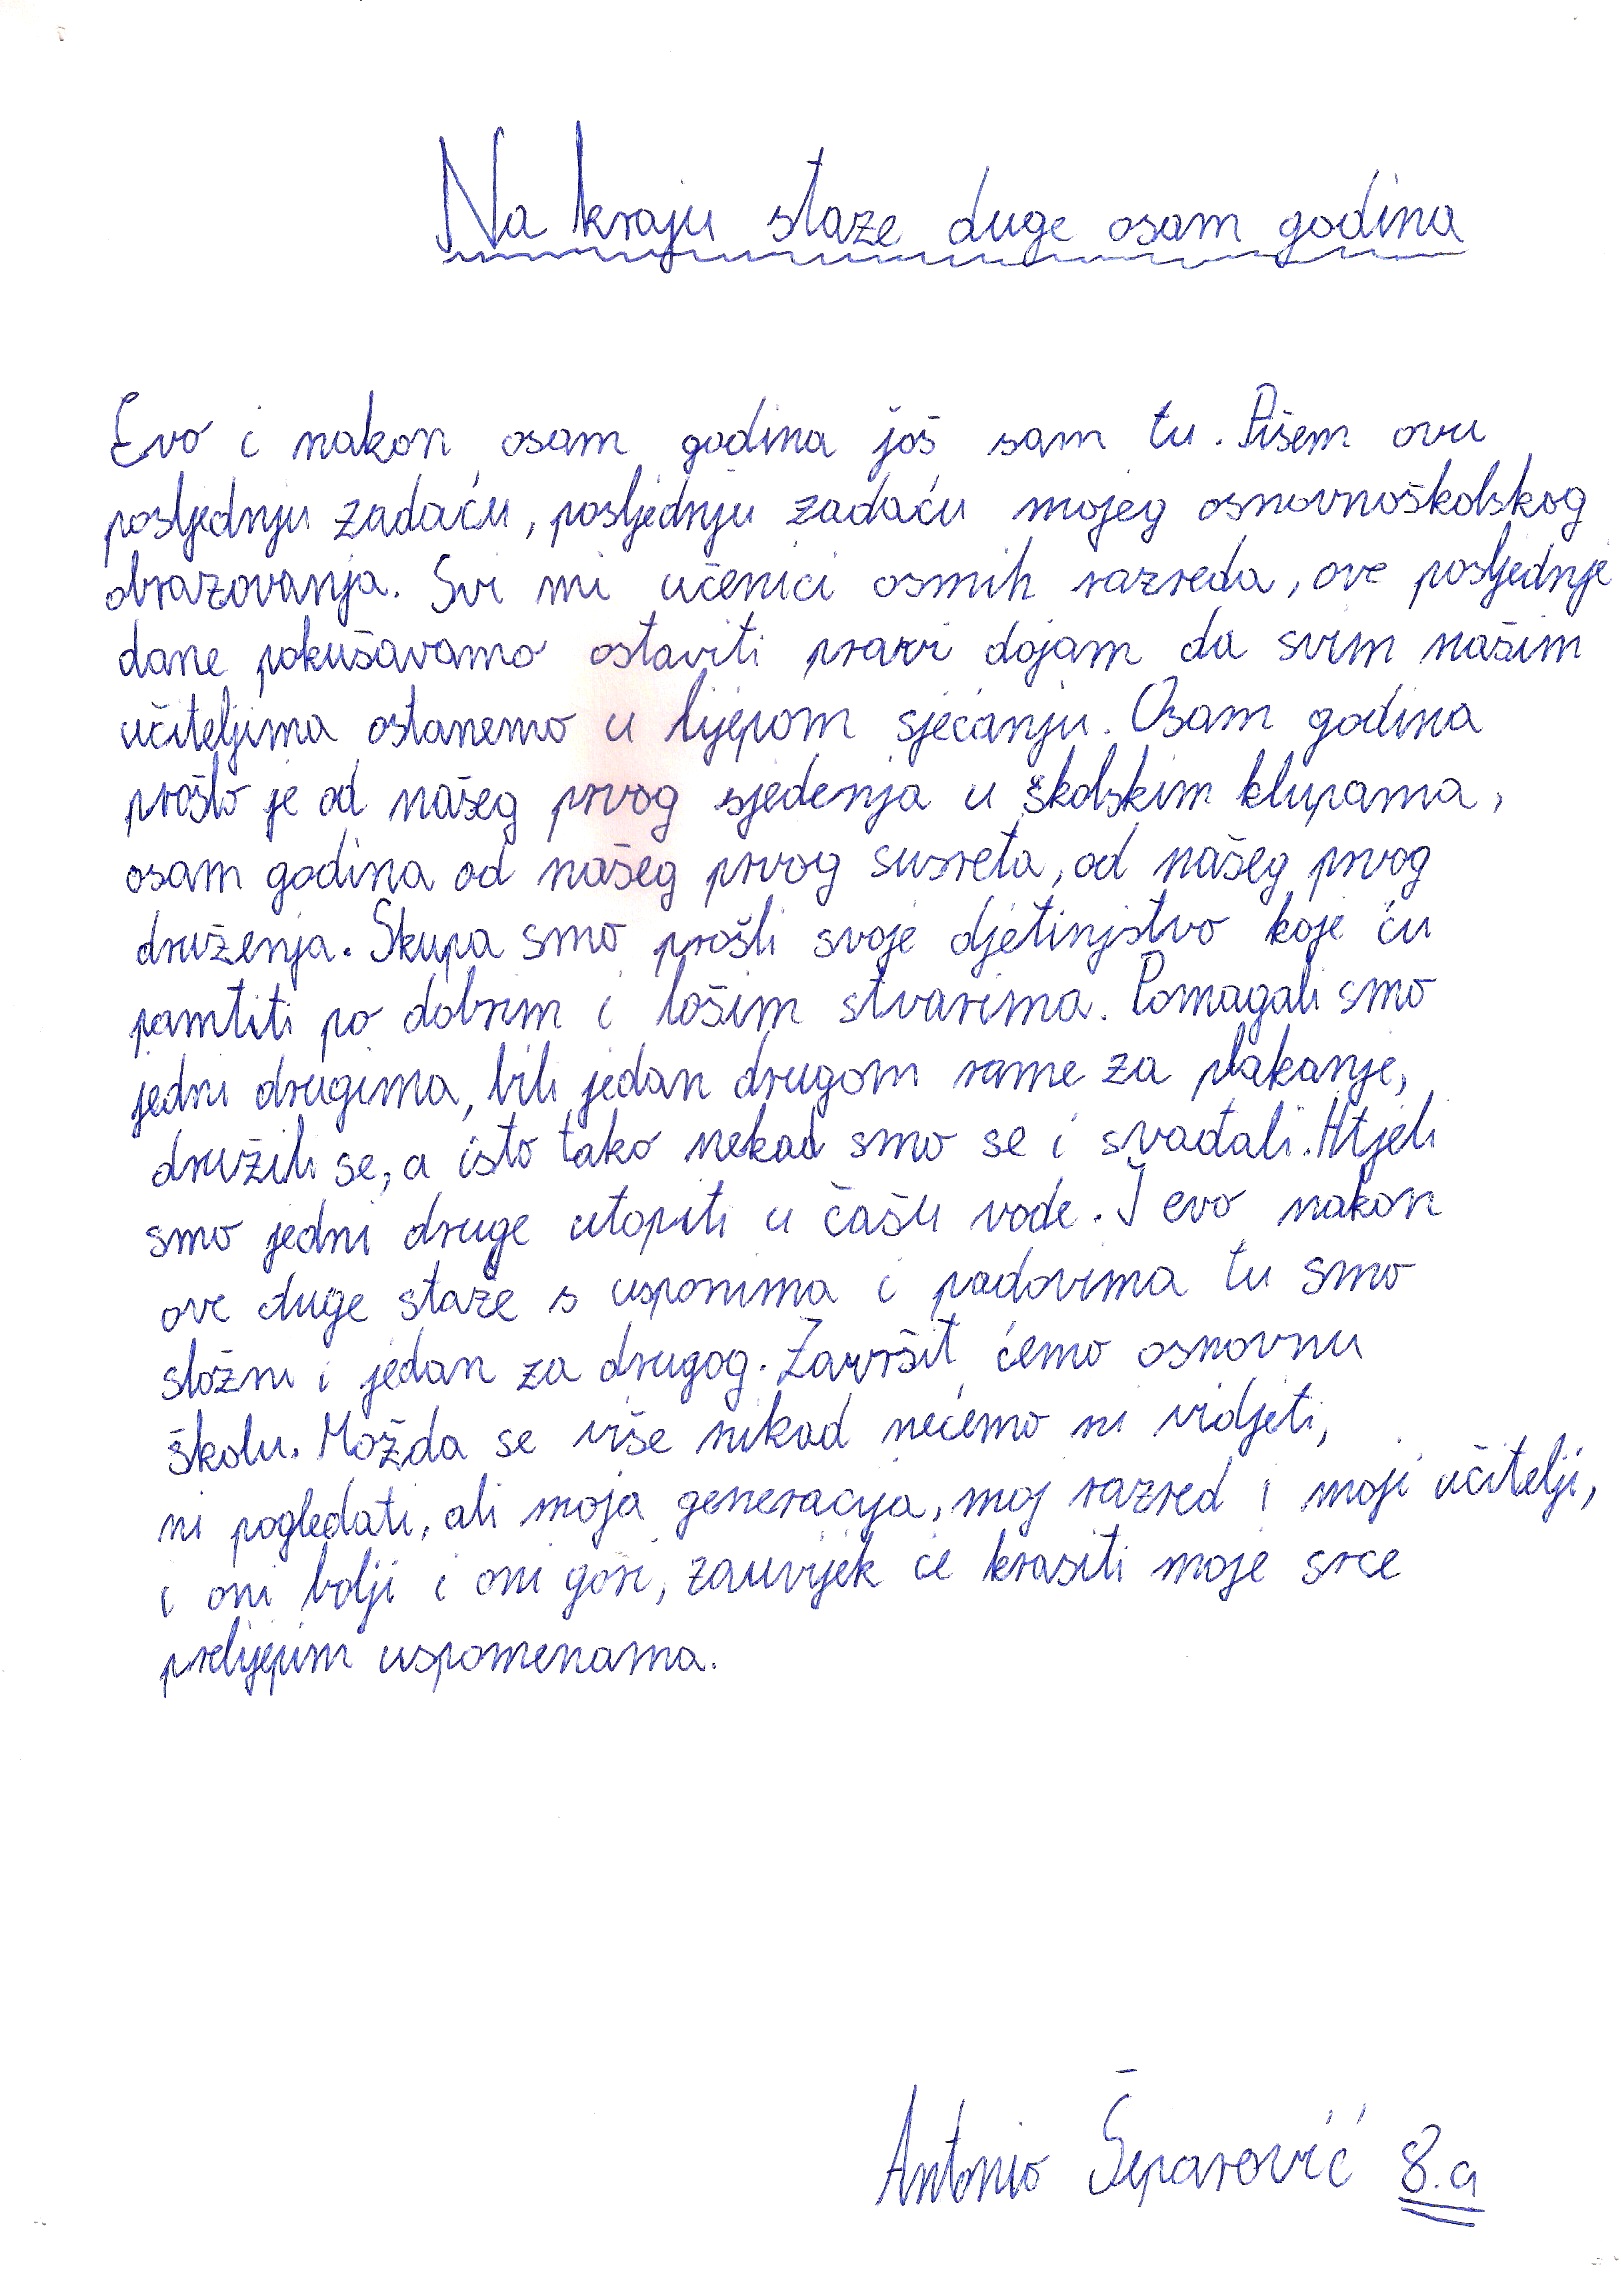 Na kraju staze duge osam godina
Evo i nakon osam godina još sam tu. Pišem ovu
posljednju zadaću, posljednju zadaću mojeg osnovnoškolskog
obrazovanja. Svi mi učenici osmih razreda, ove posljednje
dane pokušavamo ostaviti pravi dojam da svim našim
učiteljima ostanemo u lijepom sjećanju. Osam godina
prošlo je od našeg prvog sjedenja u školskim klupama,
osam godina od našeg prvog susreta, od našeg prvog
druženja. Skupa smo prošli svoje djetinjstvo koje ću
pamtiti po dobrim i lošim stvarima. Pomagali smo
jedni drugima, bili jedan drugom rame za plakanje,
družili se, a isto tako nekad smo se i svađali. Htjeli
smo jedni druge utopiti u čašu vode. I evo nakon
ove duge staze s usponima i padovima tu smo
složni i jedan za drugog. Završit ćemo osnovnu
školu. Možda se više nikad nećemo ni vidjeti,
ni pogledati, ali moja generacija, moj razred i moji učitelji,
i oni bolji i oni gori, zauvijek će krasiti moje srce
prelijepim uspomenama.
Antonio Šeparović 8.a